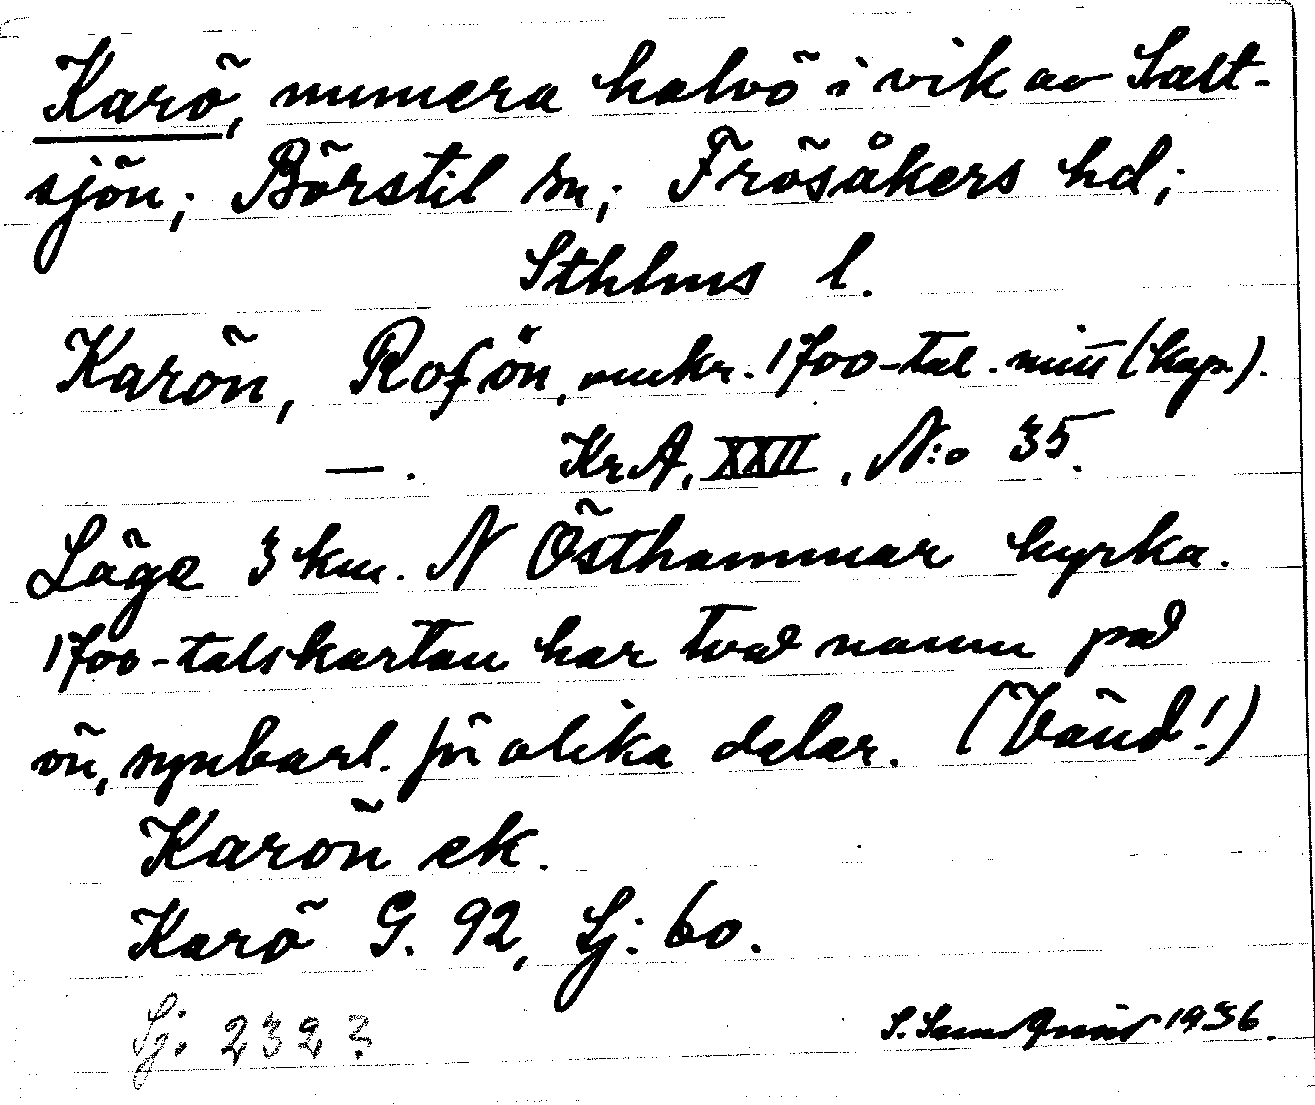 Karö, numera halvö i vik av Salt-
sjön; Börstil sn; Frösåkers hd;
Sthlms l.
Karön, Rofön, omkr. 1700-tal. mitt (kop.).
—. KrA, XXII, N:o 35.
Läge 3 km. N Östhammar kyrka.
1700-talskartan har två namn på
ön, synbarl. för olika delar. (Vänd!)
Karön ek.
Karö G. 92, Sj: 60.
Sj: 232 3
S. 1936.